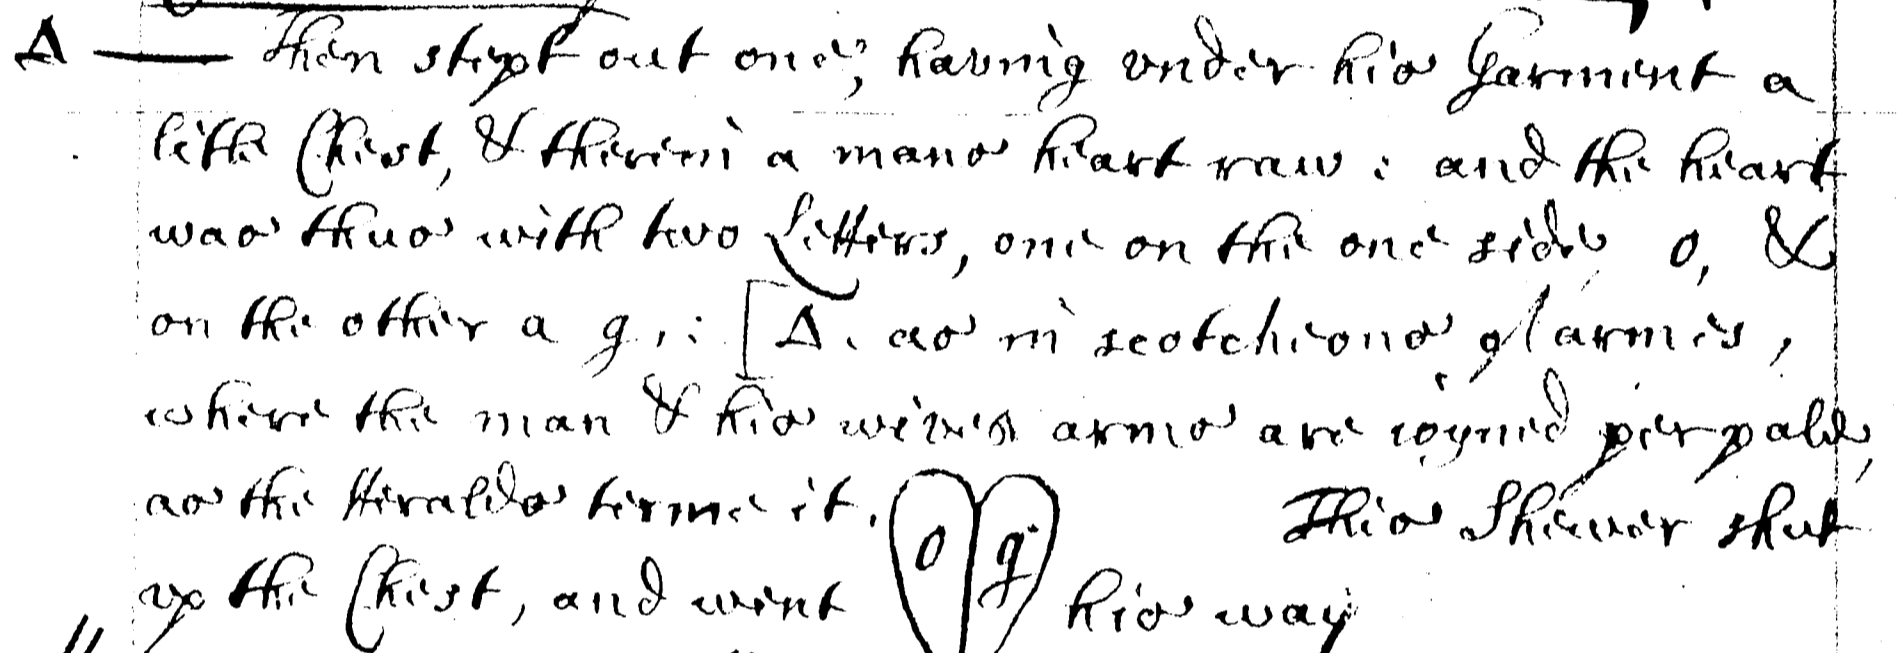 Δ — Then stept out one, having vnder his Garment a
litle Chest, & therein a mans heart raw : and the heart
was thus with two Letters, one on the one side o, &
on the other a g, : [Δ. as in scotcheons of armes,
where the man & his wives arms are ioyned per pale,
as the Heralds terme it. This Shewer shut
o g
vp the Chest, and went his way